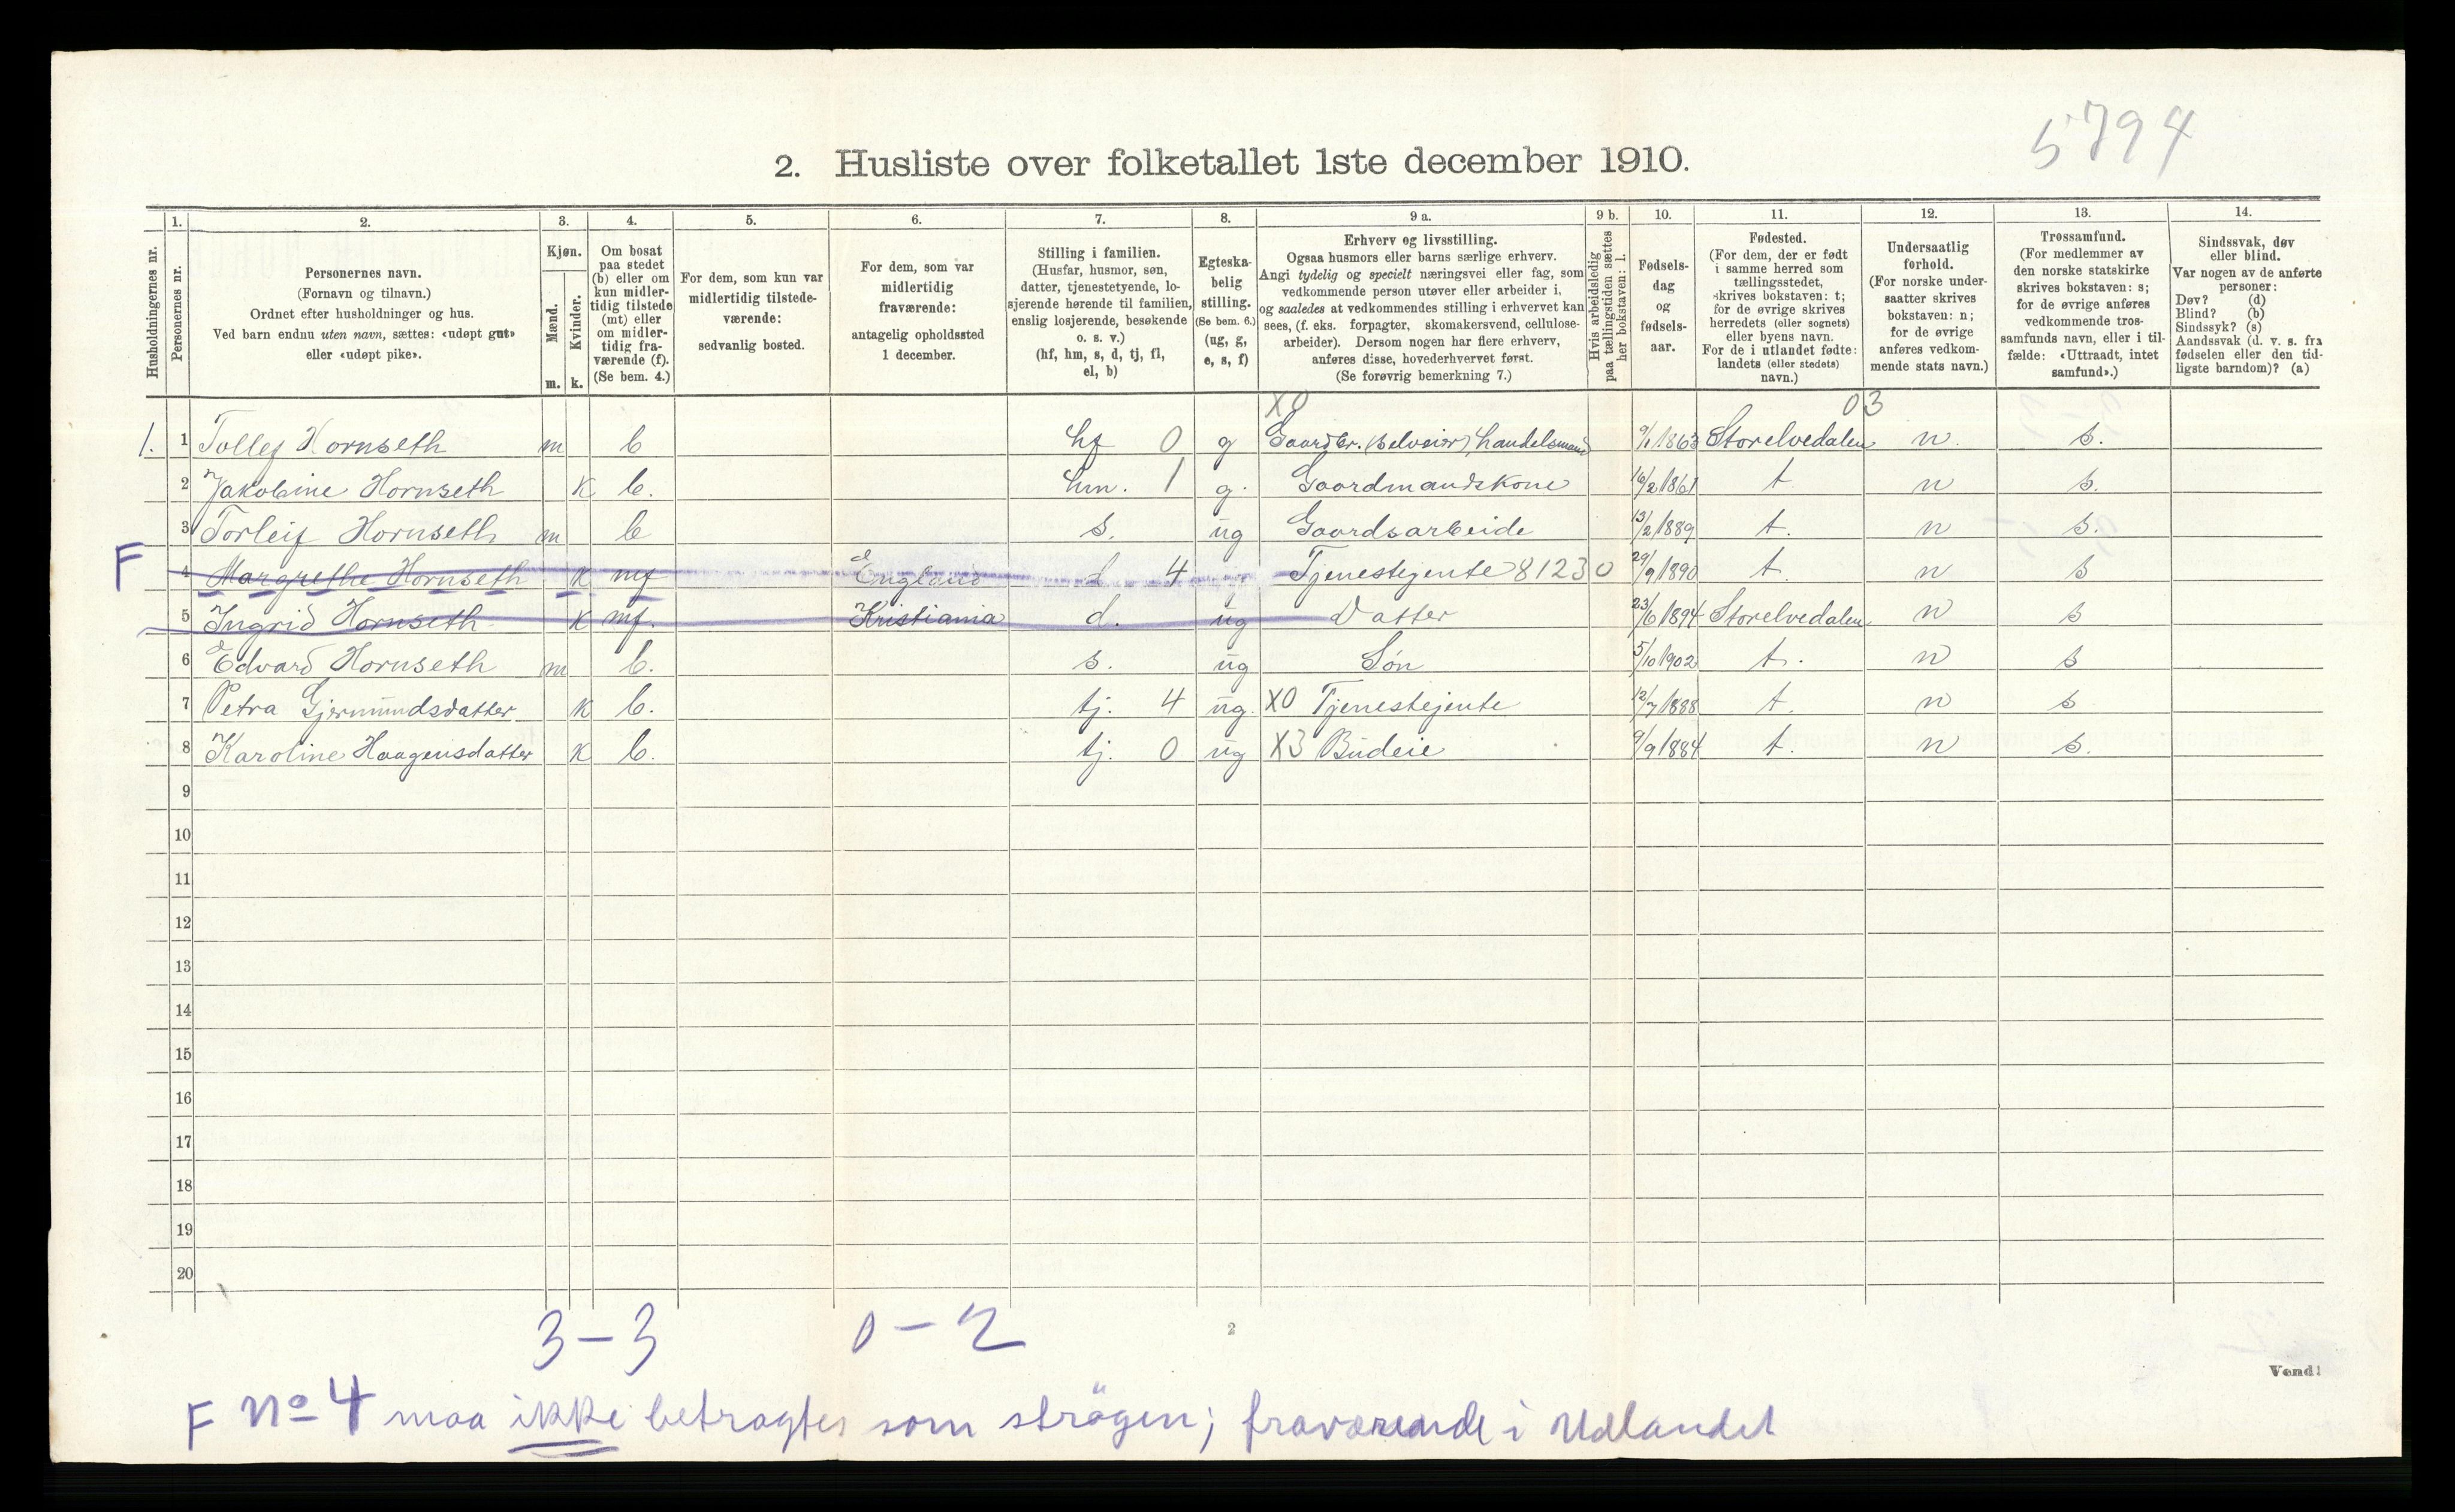 5794
2. Husliste over folketallet 1ste december 1910.
Husholdningernes nr.
1.
Personernes nr.
2.
Personernes navn.
(Fornavn og tilnavn.)
Ordnet efter husholdninger og hus.
Ved barn endnu uten navn, sættes: «udøpt gut»
eller «udøpt pike».
3.
Kjøn.
Mænd.
Kvinder.
m. k.
4.
Om bosat
paa stedet
(b) eller om
kun midler-
tidig tilstede
(mt) eller
om midler-
tidig fra-
værende (f).
(Se bem. 4.)
5.
For dem, som kun var
midlertidig tilstede-
værende:
sedvanlig bosted.
6.
For dem, som var
midlertidig
fraværende:
antagelig opholdssted
1 december.
7.
Stilling i familien.
(Husfar, husmor, søn,
datter, tjenestetyende, lo-
sjerende hørende til familien,
enslig losjerende, besøkende
o. s. v.)
(hf, hm, s, d, tj, fl,
el, b)
8.
Egteska-
belig
stilling.
(Se bem. 6.)
(ug, g,
e, s, f)
9 a.
Erhverv og livsstilling.
Ogsaa husmors eller barns særlige erhverv.
Angi tydelig og specielt næringsvei eller fag, som
vedkommende person utøver eller arbeider i,
og saaledes at vedkommendes stilling i erhvervet kan
sees, (f. eks. forpagter, skomakersvend, cellulose-
arbeider). Dersom nogen har flere erhverv,
anføres disse, hovederhvervet først.
(Se forøvrig bemerkning 7.)
9 b.
Hvis arbeidsledig
paa tællingstiden sættes
her bokstaven: l.
10.
Fødsels-
dag
og
fødsels-
aar.
11.
Fødested.
(For dem, der er født
i samme herred som
tællingsstedet,
skrives bokstaven: t;
for de øvrige skrives
herredets (eller sognets)
eller byens navn.
For de i utlandet fødte:
landets (eller stedets)
navn.)
12.
Undersaatlig
forhold.
(For norske under-
saatter skrives
bokstaven: n;
for de øvrige
anføres vedkom-
mende stats navn.)
13.
Trossamfund.
(For medlemmer av
den norske statskirke
skrives bokstaven: s;
for de øvrige anføres
vedkommende tros-
samfunds navn, eller i til-
fælde: «Uttraadt, intet
samfund».)
14.
Sindssvak, døv
eller blind.
Var nogen av de anførte
personer:
Døv? (d)
Blind? (b)
Sindssyk? (s)
Aandssvak (d. v. s. fra
fødselen eller den tid-
ligste barndom)? (a)
X0 03
1. 1 Tollef Hornseth m b hf 0 g Gaardbr. (selveier), handelsmand 9/1 1863 Storelvedalen n. s.
2 Jakobine Hornseth K b. hm. 1 g. Gaardmandskone 16/2 1861 t. n s.
3 Torleif Hornseth m b s. ug Gaardsarbeide 13/2 1889 t. n s.
F 4 Margrethe Hornseth K mf England d 4 ug Tjenestejente 81230 29/9 1890 t. n s
5 Ingrid Hornseth K mf. Kristiania d. ug Datter 23/6 1894 Storelvedalen n s
6 Edvard Hornseth m b. s. ug Søn 5/10 1902 t. n s
7 Petra Gjermundsdatter K b. tj. 4 ug. X0 Tjenestejente 12/7 1888 t. n s
8 Karoline Haagensdatter K b. tj. 0 ug X3 Budeie 9/9 1884 t. n s.
9
10
11
12
13
14
15
16
17
18
19
20
3-3 0-2
2
Vend!
F No 4 maa ikke betragtes som strögen; fraværende i Udlandet